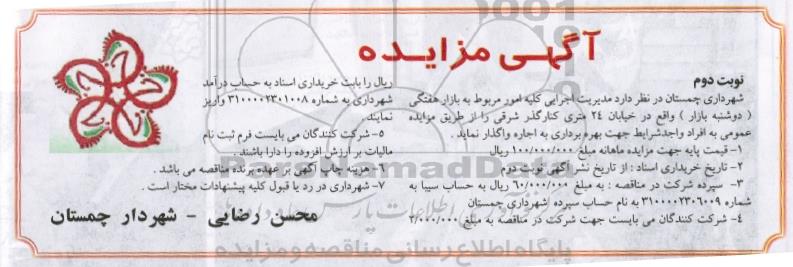 آگهـی مزایـده
نوبت دوم
شهرداری چمستان در نظر دارد مدیریت اجرایی کلیه امور مربوط به بازار هفتگی
( دوشنبه بازار ) واقع در خیابان ۲۴ متری کنارگذر شرقی را از طریق مزایده
عمومی به افراد واجدشرایط جهت بهره برداری به اجاره واگذار نماید .
۱- قیمت پایه جهت مزایده ماهانه مبلغ ۱۰۰/۰۰۰/۰۰۰ ریال
۲- تاریخ خریداری اسناد : از تاریخ نشر آگهی نوبت دوم
۳- سپرده شرکت در مناقصه : به مبلغ ۶۰/۰۰۰/۰۰۰ ریال به حساب سیبا به
شماره ۳۱۰۰۰۰۲۳۰۶۰۰۹ به نام حساب سپرده شهرداری چمستان
۴- شرکت کنندگان می بایست جهت شرکت در مناقصه به مبلغ ۲/۰۰۰/۰۰۰
ریال را بابت خریداری اسناد به حساب درآمد
شهرداری به شماره ۳۱۰۰۰۰۲۳۰۱۰۰۸ واریز
نمایند.
۵- شرکت کنندگان می بایست فرم ثبت نام
مالیات بر ارزش افزوده را دارا باشند .
۶- هزینه چاپ آگهی بر عهده برنده مناقصه می باشد .
۷- شهرداری در رد یا قبول کلیه پیشنهادات مختار است .
محسن رضایی - شهردار چمستان
ParsNamadData
پایگاه اطلاع رسانی مناقصه و مزایده